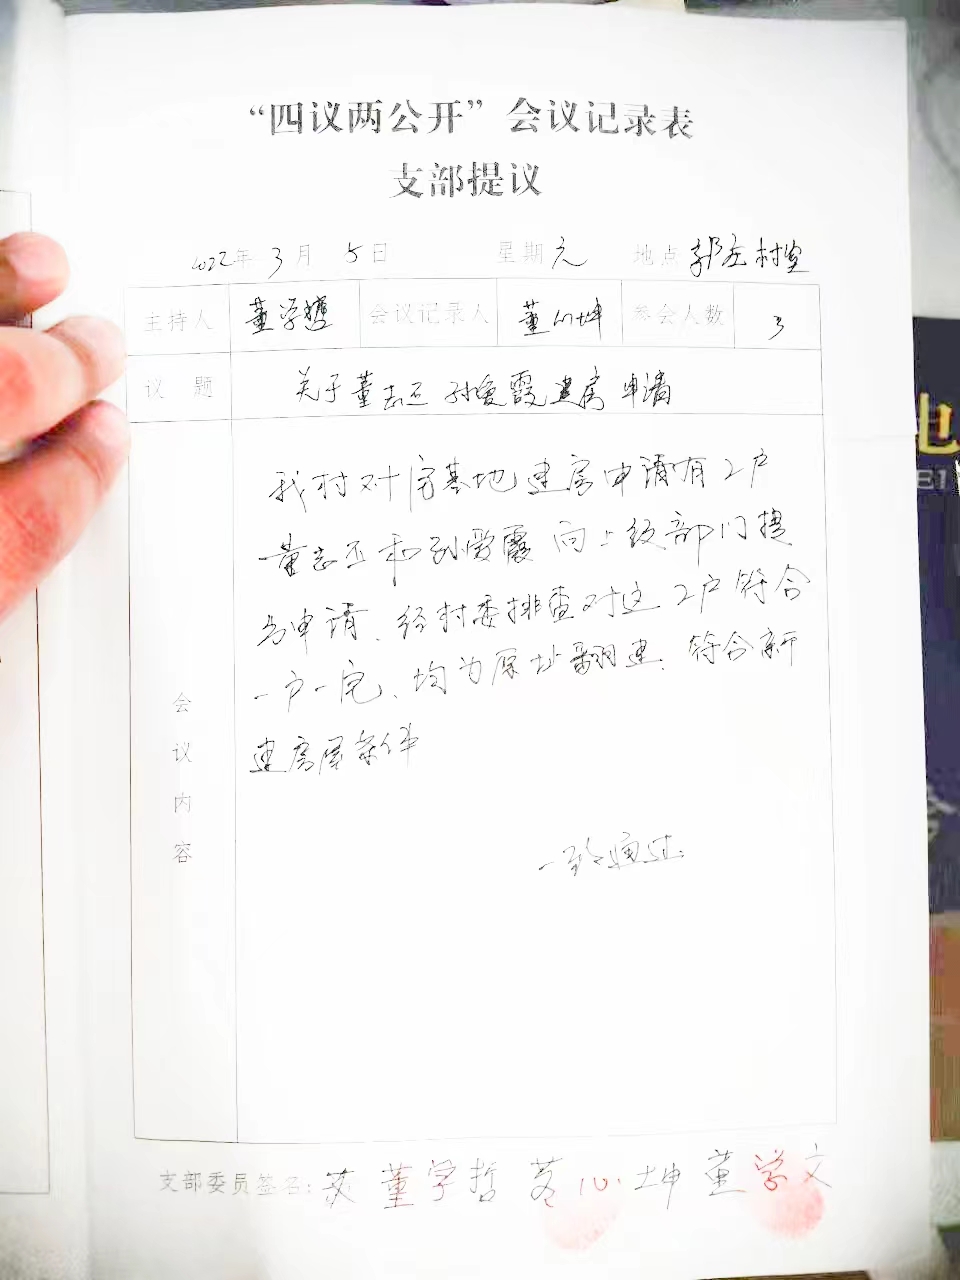 “四议两公开”会议记录表
支部提议
2022年 3月 5日 星期 地点 郭庄村室
主持人 董学 会议记录人 董 坤 参会人数 3
议 题 关于董志丕 孙爱霞建房申请
会议内容
我村对宅基地建房申请有2户
董志丕和孙爱霞向上级部门提
出申请、经村委排查对这2户符合
一户一宅、均为原址翻建.符合新
建房屋条件
一致通过
支部委员签名: 董学哲 坤 董学文